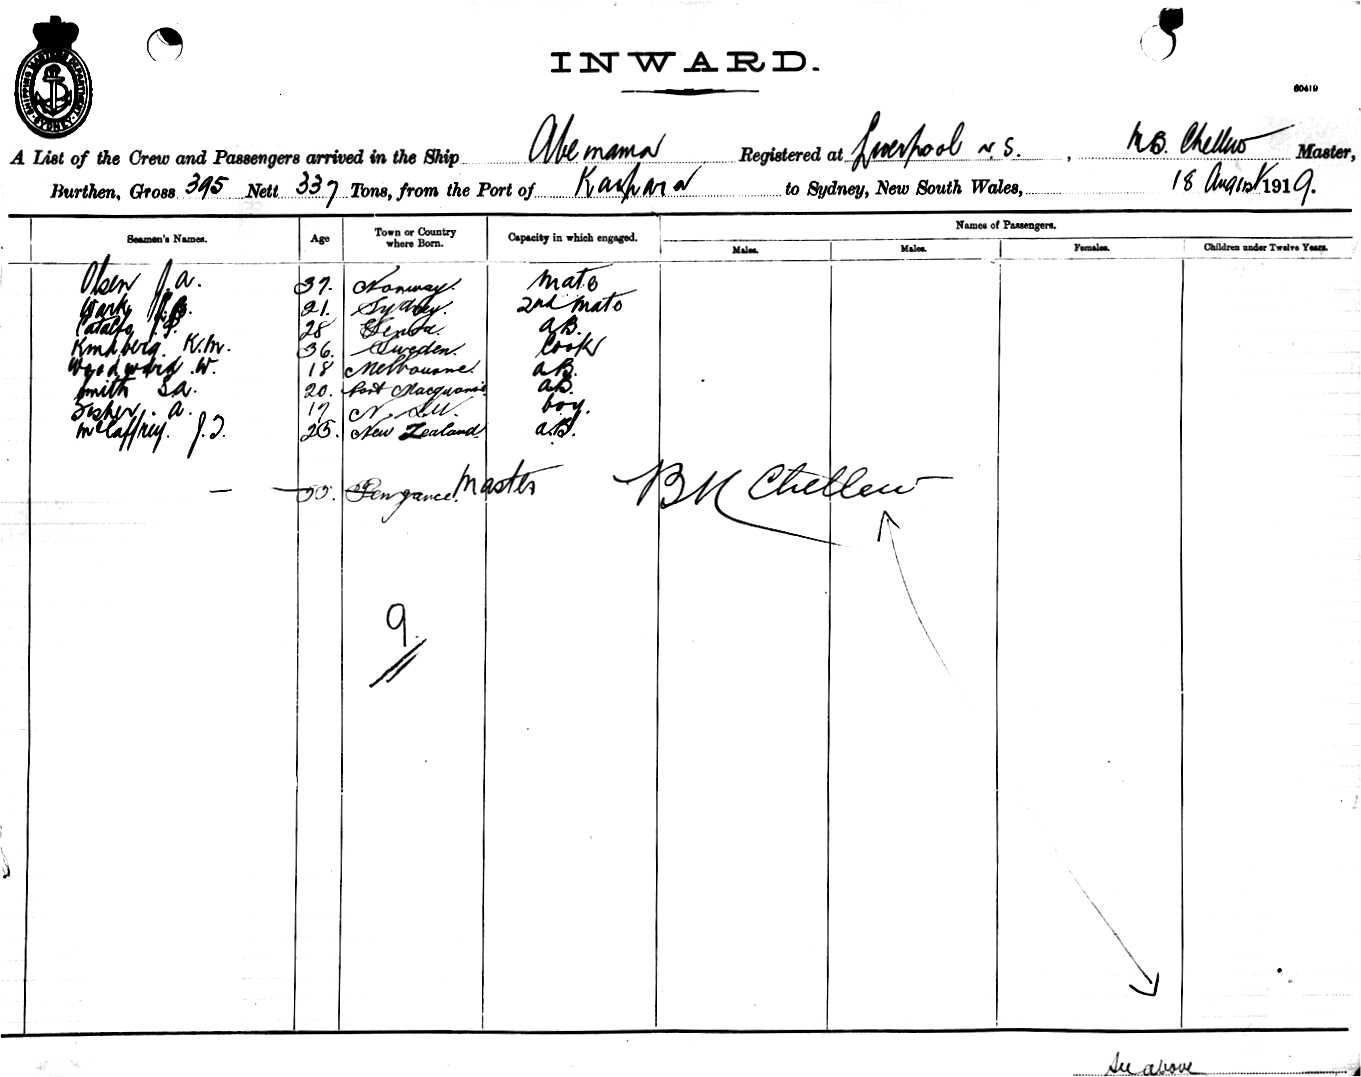 SHIPPING MASTER'S DEPARTMENT SYDNEY
INWARD.
60419
A List of the Crew and Passengers arrived in the Ship Abemama Registered at Liverpool N.S., Chellew Master,
Burthen, Gross 395 Nett 337 Tons, from the Port of Kaipara to Sydney, New South Wales, 18 August 1919.
Seamen's Names. Age Town or Country where Born. Capacity in which engaged. Names of Passengers.
Males. Males. Females. Children under Twelve Years.
Olsen J.A. 37. Norway. Mate
Wark 21. Sydney. 2nd Mate
28 Genoa. A.B.
K.M. 36. Sweden. Cook
Woodward W. 18 Melbourne. A.B.
Smith S.A. 20. Port Macquarie A.B.
Fisher. A. N.S.W. boy.
McCaffrey. J.J. 25. New Zealand. A.B.
— — 55. Penzance. Master Chellew
9.
See above